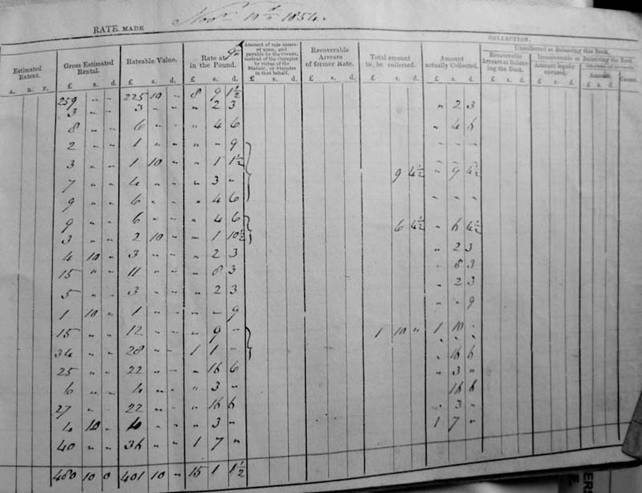 RATE MADE Novr 10th 1854.
COLLECTION.
Estimated Extent. Gross Estimated Rental. Rateable Value. Rate at 9d in the Pound. Recoverable Arrears of former Rate. Total amount to be collected. Amount actually Collected.
A. R. P. £ s. d. £ s. d. £ s. d. £ s. d. £ s. d. £ s. d. £ s. d.
259 " " 225 10 " 8 9 1½
3 " " 3 " " " 2 3 " 2 3
8 " " 6 " " " 4 6 " 4 6
2 " " 1 " " " " 9
3 " " 1 10 " " 1 1½ 9 4½ " 9 4½
7 " " 4 " " " 3 "
9 " " 6 " " " 4 6
9 " " 6 " " " 4 6 6 4½ " 6 4½
3 " " 2 10 " " 1 10½
4 10 " 3 " " " 2 3 " 2 3
15 " " 11 " " " 8 3 " 8 3
5 " " 3 " " " 2 3 " 2 3
1 10 " 1 " " " " 9 " " 9
15 " " 12 " " " 9 " 1 10 " 1 10 "
34 " " 28 " " 1 1 "
25 " " 22 " " " 16 6 " 16 6
6 " " 4 " " " 3 " " 3 "
27 " " 22 " " " 16 6 " 16 6
4 10 " 4 " " " 3 " " 3 "
40 " " 36 " " 1 7 " 1 7 "
480 10 0 401 10 " 15 1 1½